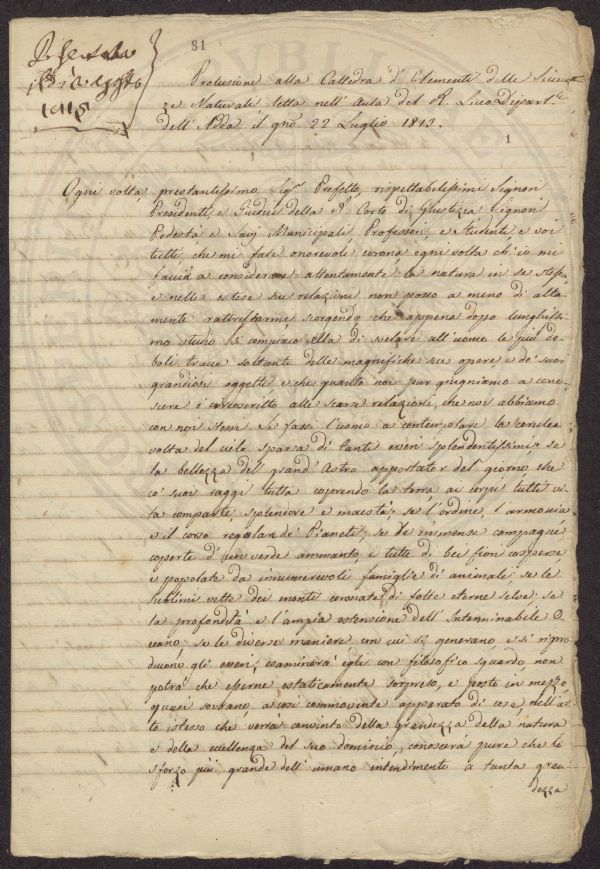 81
1815
Prolusione alla Cattedra d'Elementi delle Scien-
ze Naturale letta nell'Aula del R. Liceo Dipart.le
dell'Adda il gno 22 Luglio 1813.
1
Ogni volta prestantissimo Sig.r Prefetto, rispettabilissimi Signori
Presidenti, e Giudici della R. Corte di Giustizia Signori
Podestà e Savj Municipali Professori, e Studenti e voi
tutti, che mi fate onorevole corona, ogni volta ch'io mi
faccia a considerare attentamente la natura in se stessa
e nelle estese sue relazioni non posso a meno di alta-
mente rattristarmi scorgendo, che appena dopo lunghissi-
mo studio si compiace ella di svelare all'uomo le più de-
boli tracce soltanto delle magnifiche sue opere, e de' suoi
grandiosi oggetti e che quanto noi pur giugniamo a cono-
scere è circoscritto alle scarse relazioni, che noi abbiamo
con noi stessi. Se fassi l'uomo a contemplare la cerulea
volta del cielo sparsa di tanti esseri splendentissimi; se
la bellezza dell grand'Astro apportator del giorno, che
co' suoi raggi tutta coprendo la terra ai corpi tutti vi-
ta comparte, splendore e maestà; se l'ordine, l'armonia
e il corso regolar de' Pianeti; se le immense campagne
coperte d'un verde ammanto, e tutte di bei fiori cosperse
e popolate da innumerevoli famiglie di animali; se le
sublimi vette dei monti coronate di folte eterne selve; se
la profondità e l'ampia estensione dell'Interminabile O-
ceano; se le diverse maniere con cui si generano, e si ripro-
ducono gli esseri, esaminerà egli con filosofico sguardo, non
potrà che esserne estaticamente sorpreso, e posto in mezzo
quasi sovrano a così commovente apparato di cose nell'at-
to istesso che verrà convinto della grandezza della natura
e della eccellenza del suo dominio, conoscerà pure che lo
sforzo più grande dell'umano intendimento a tanta gran-
dezza